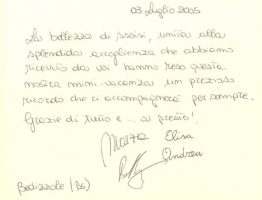 03 Luglio 2005
La bellezza di Assisi, unita alla
splendida accoglienza che abbiamo
ricevuto da voi hanno reso questa
nostra mini-vacanza un prezioso
ricordo che ci accompagnerà per sempre.
Grazie di tutto e ... a presto!
Elisa
Andrea
Bedizzole (BS)